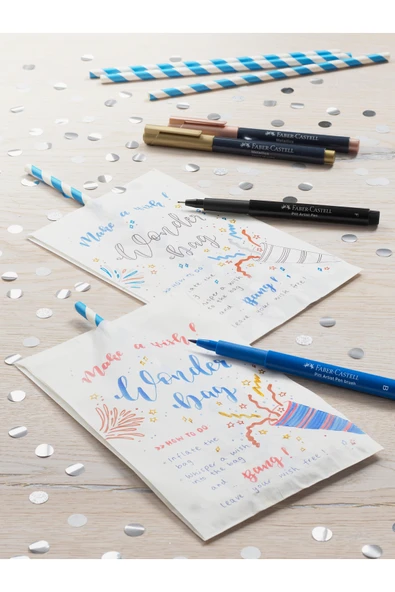 FABER-CASTELL
Metallics
FABER-CASTELL
FABER-CASTELL
Pitt Artist Pen
Make a wish!
Wonder
bag
Bang!
FABER-CASTELL
Pitt Artist Pen brush
B
Make a wish!
Wonder
bag
HOW TO DO
inflate the
bag
whisper a wish
into the bag
and
Bang!
leave your wish free!